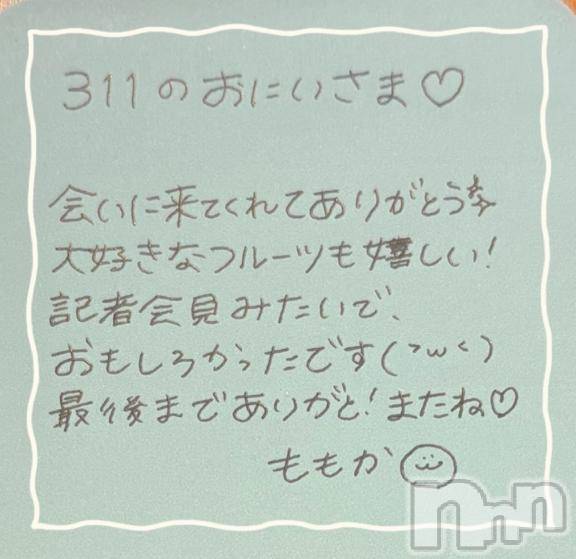 311のおにいさま♡
会いに来てくれてありがとう
大好きなフルーツも嬉しい!
記者会見みたいで、
おもしろかったです(>ω<)
最後までありがと!またね♡
ももか
nnn